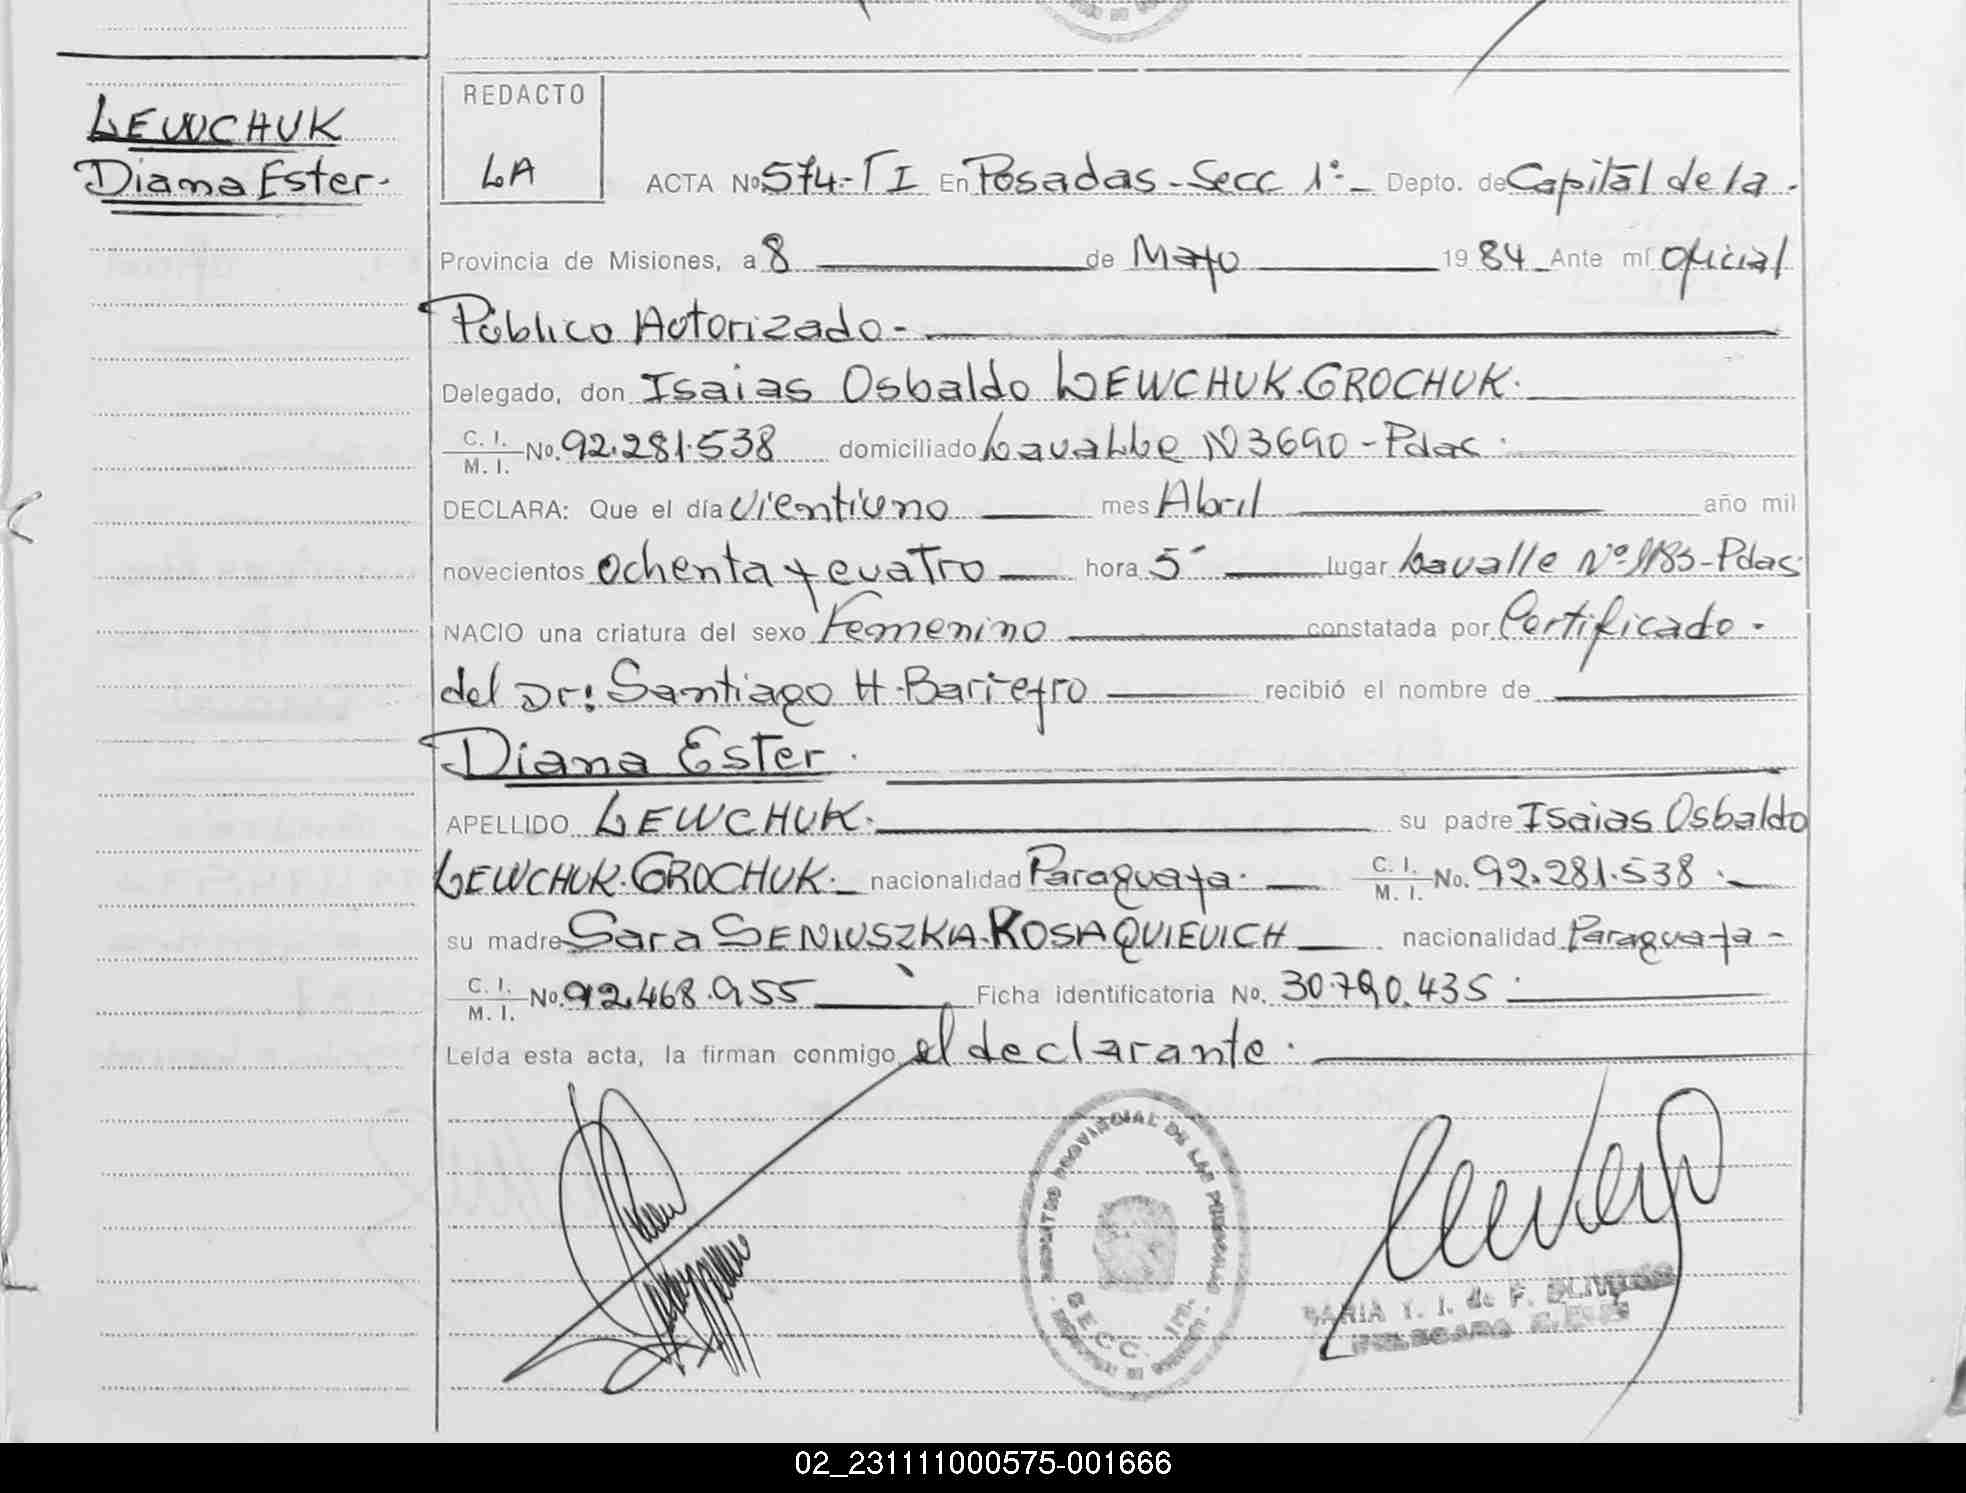 LEWCHUK
Diana Ester.
REDACTO
LA
ACTA Nº 574-TI En Posadas-Secc 1º- Depto. de Capital de la.
Provincia de Misiones, a 8 de Mayo 1984 Ante mí Oficial
Público Autorizado-
Delegado, don Isaias Osbaldo LEWCHUK.GROCHUK.
C. I. / M. I. No. 92.281.538 domiciliado Lavalle N 3690-Pdas.
DECLARA: Que el día vientiuno mes Abril año mil
novecientos ochenta y cuatro hora 5 lugar Lavalle Nº -Pdas.
NACIO una criatura del sexo Femenino constatada por Certificado.
del Dr: Santiago H. Barreyro recibió el nombre de
Diana Ester.
APELLIDO LEWCHUK. su padre Isaias Osbaldo
LEWCHUK.GROCHUK. nacionalidad Paraguaya. C. I. / M. I. No. 92.281.538.
su madre Sara SENIUSZKA.ROSAQUIEVICH nacionalidad Paraguaya-
C. I. / M. I. No. 92.468.955 Ficha identificatoria No. 30.790.435.
Leída esta acta, la firman conmigo el declarante.
PROVINCIAL DE LAS PERSONAS
SECC.
MARIA Y. I. de F.
DELEGADA
02_231111000575-001666